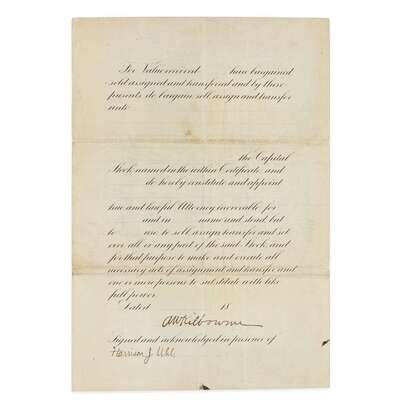 For Value received have bargained
sold assigned and transferred and by these
presents do bargain, sell, assign and transfer
unto
the Capital
Stock named in the within Certificate and
do hereby constitute and appoint
true and lawful Attorney irrevocable for
and in name and stead but
to use to sell, assign transfer and set
over all or any part of the said Stock and
for that purpose to make and execute all
necessary acts of assignment and transfer and
one or more persons to substitute with like
full power.
Dated 18
Kilbourne
Signed and acknowledged in presence of
Harrison J.